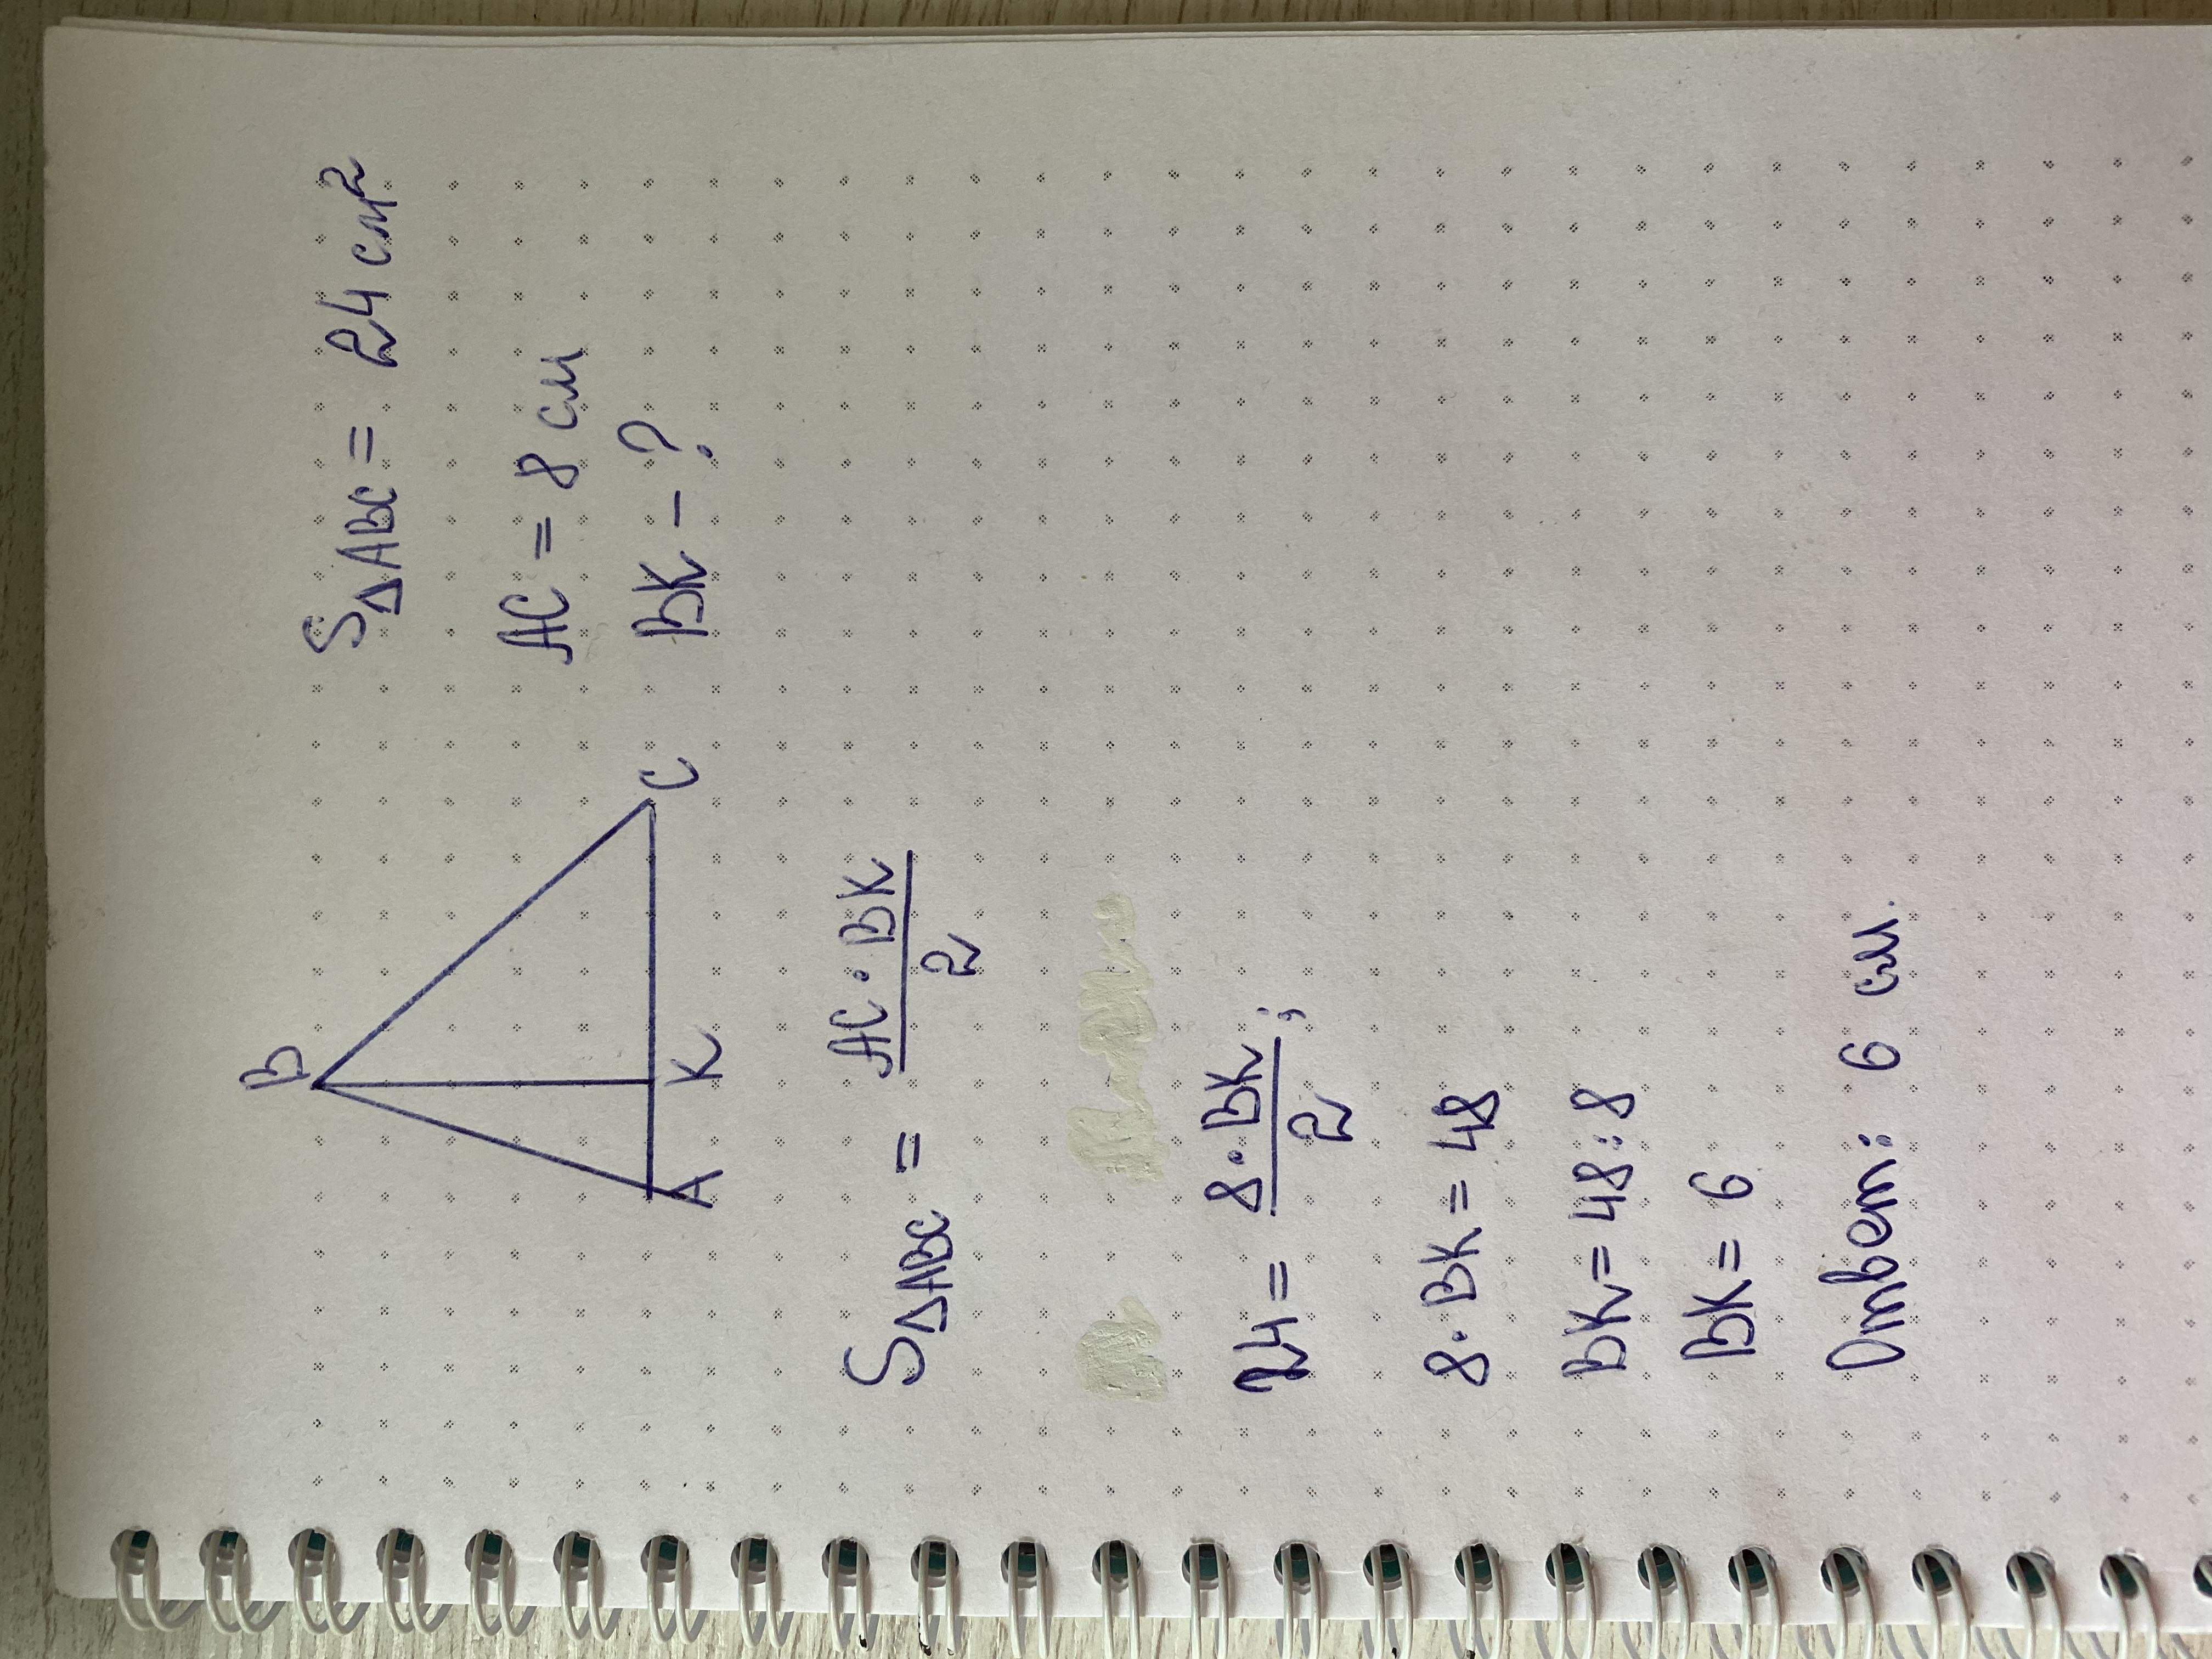 B
A K C
S△ABC = 24 см²
AC = 8 см
BK - ?
S△ABC = AC · BK / 2
24 = 8 · BK / 2 ;
8 · BK = 48
BK = 48 : 8
BK = 6
Ответ: 6 см.